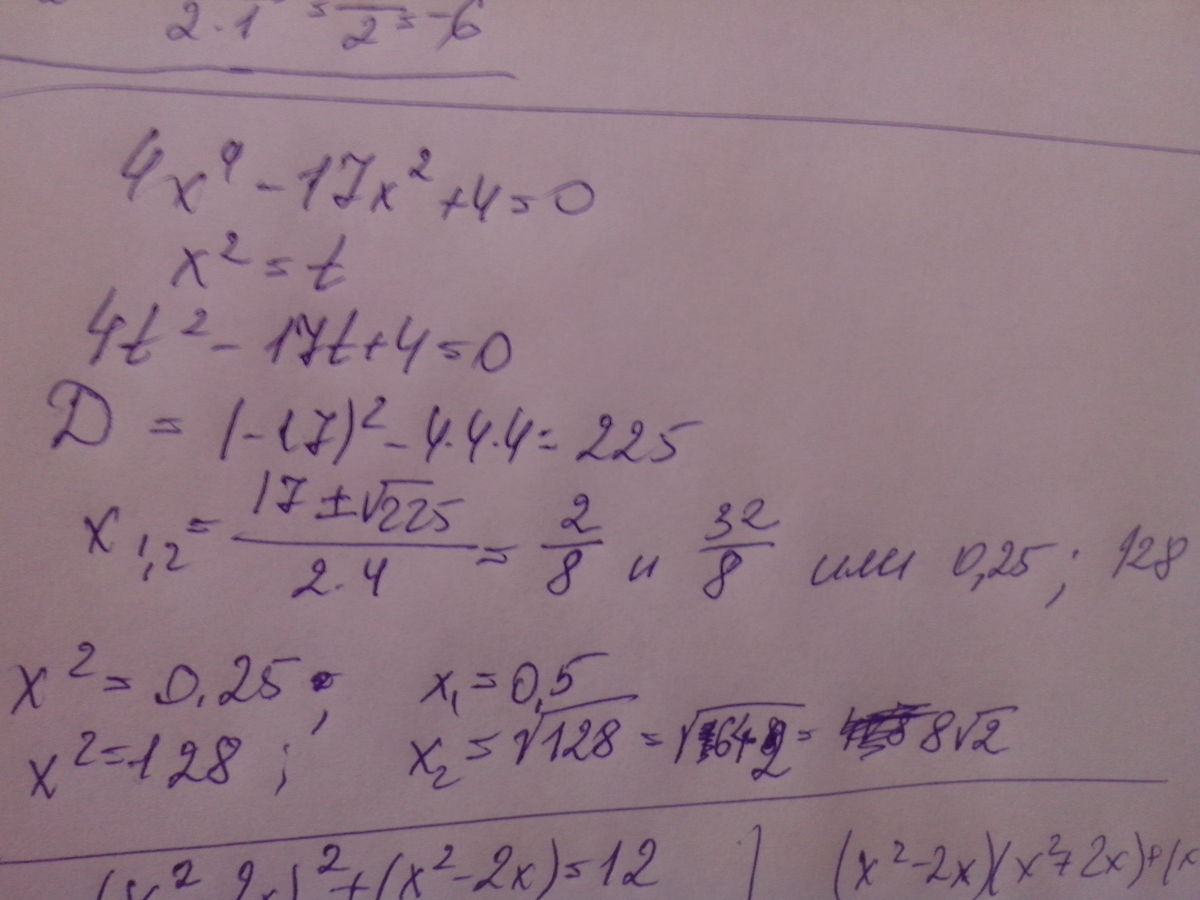 2·1 = 2 = -6
4x⁴ - 17x² + 4 = 0
x² = t
4t² - 17t + 4 = 0
D = (-17)² - 4·4·4 = 225
x₁,₂ = (17 ± √225)/(2·4) = 2/8 и 32/8 или 0,25; 128
x² = 0,25; x₁ = 0,5
x² = 128; x₂ = √128 = √64·2 = 8√2
(x² - 2x)² + (x² - 2x) = 12 | (x² - 2x)(x² + 2x) + (x